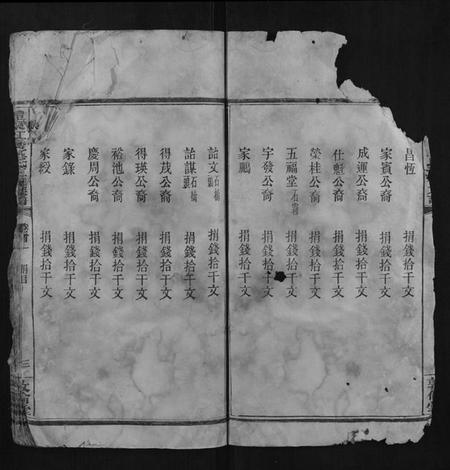 昌恆 捐錢拾千文
家賓公裔 捐錢拾千文
成運公裔 捐錢拾千文
仕魁公裔 捐錢拾千文
榮桂公裔 捐錢拾千文
五福堂 捐錢拾千文
宇發公裔 捐錢拾千文
家鵬 捐錢拾千文
詁文 石橋頭 捐錢拾千文
詁謀 石橋頭 捐錢拾千文
得茂公裔 捐錢拾千文
得瑛公裔 捐錢拾千文
裕池公裔 捐錢拾千文
慶周公裔 捐錢拾千文
家錄 捐錢拾千文
家綬 捐錢拾千文